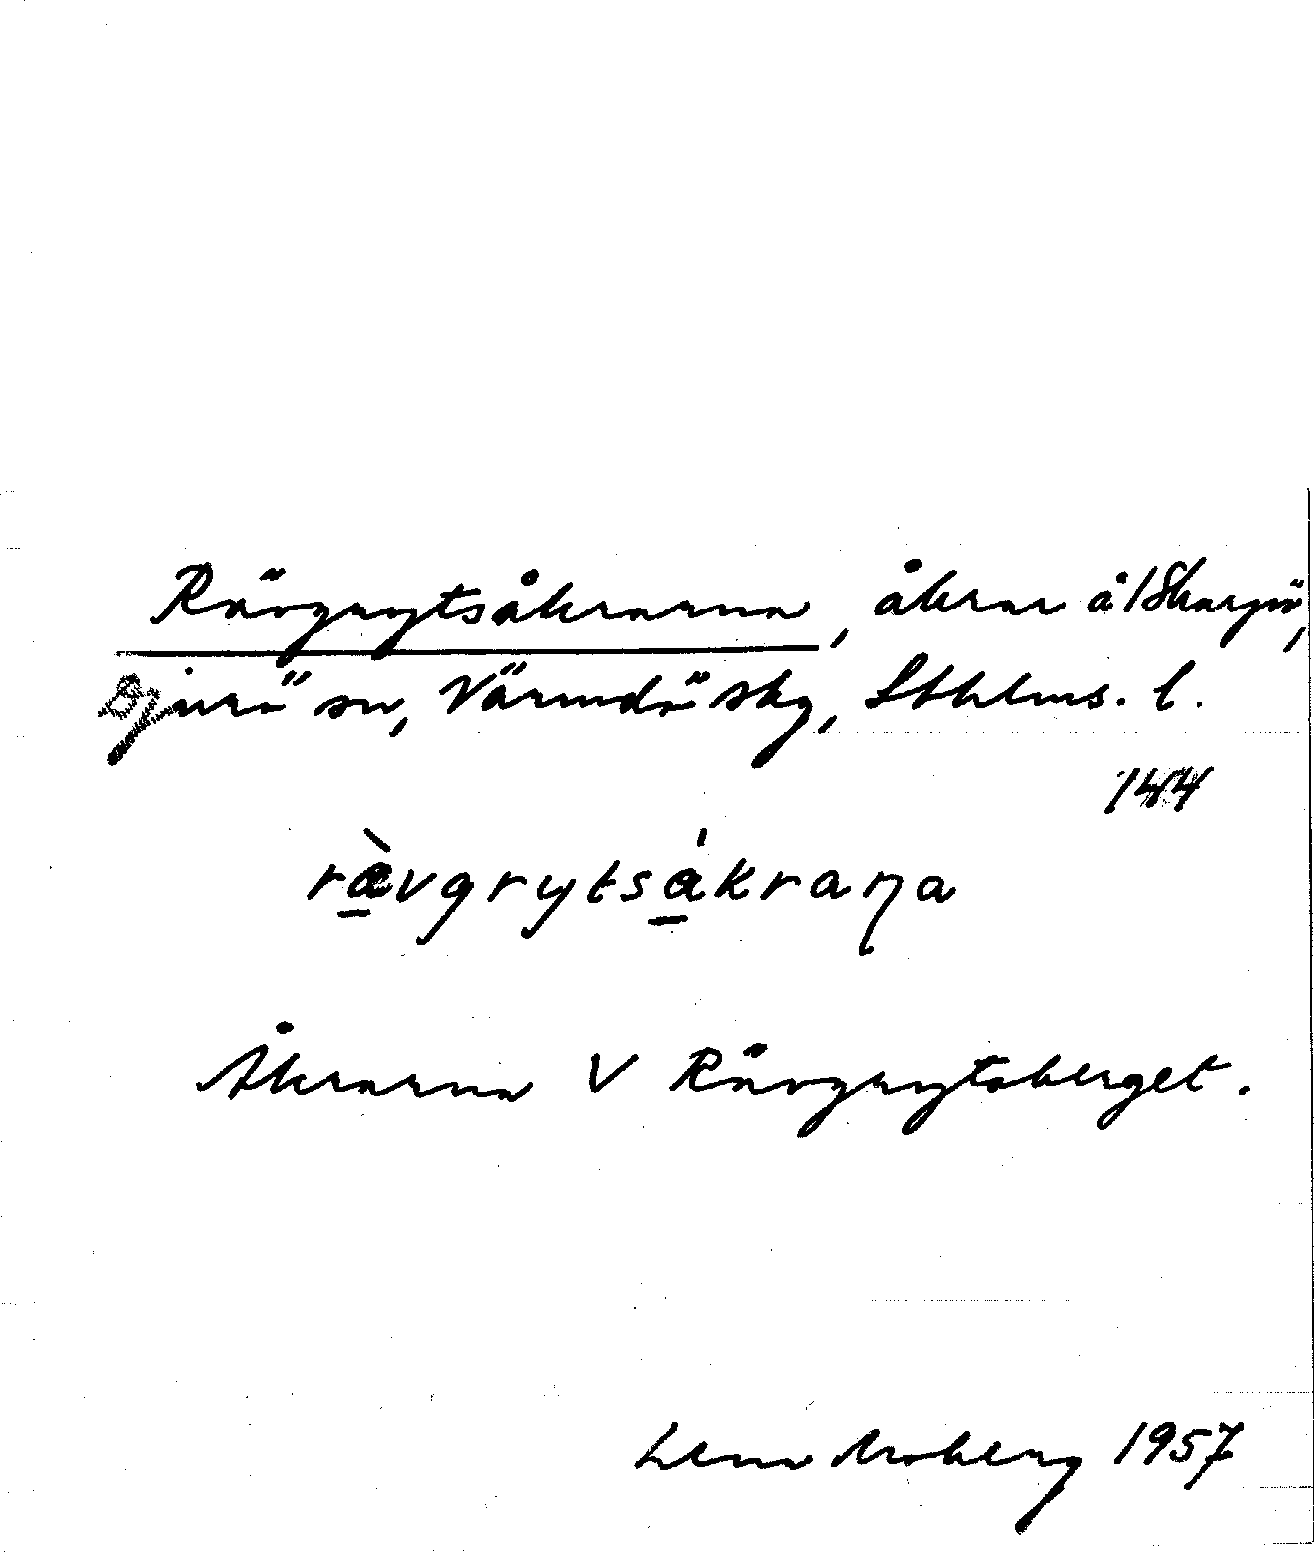 Rävgrytsåkrarna, åkrar å 1 Skarpö,
Djurö sn, Värmdö skg, Sthlms. l.
144
ræ̀vgrytsákraŋa
Åkrarna V Rävgrytsberget.
Lena Moberg 1957